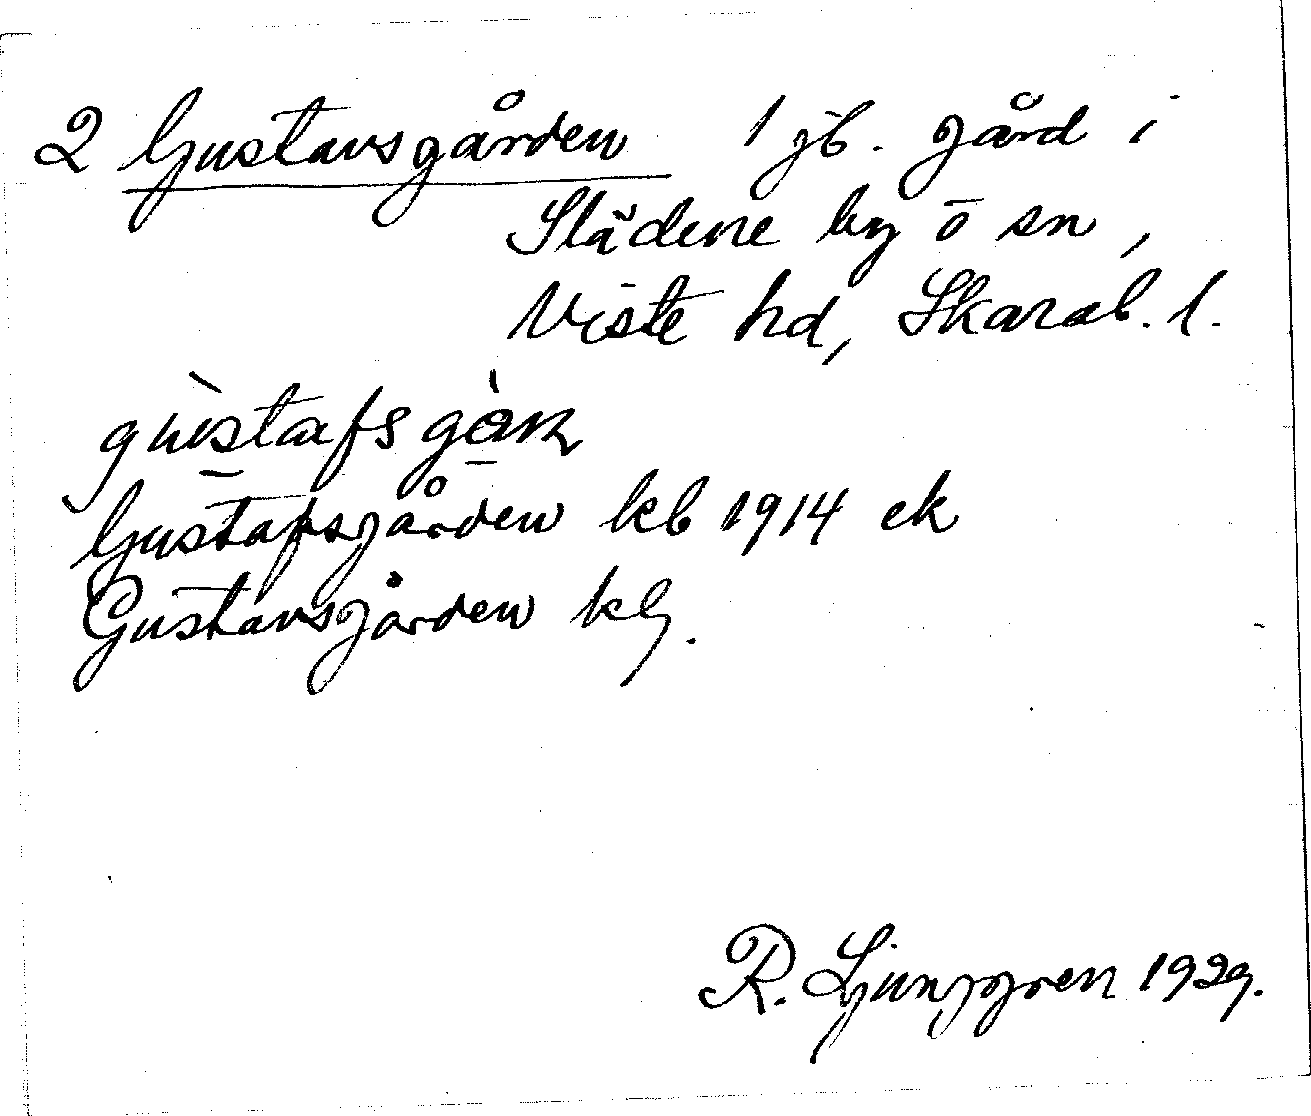 2 Gustavsgården 1 jb. gård i
Slädene by o sn,
Viste hd, Skarab. l.
gustafsgån
Gustafsgården kb 1914 ek
Gustavsgården kb.
R. Ljunggren 1929.